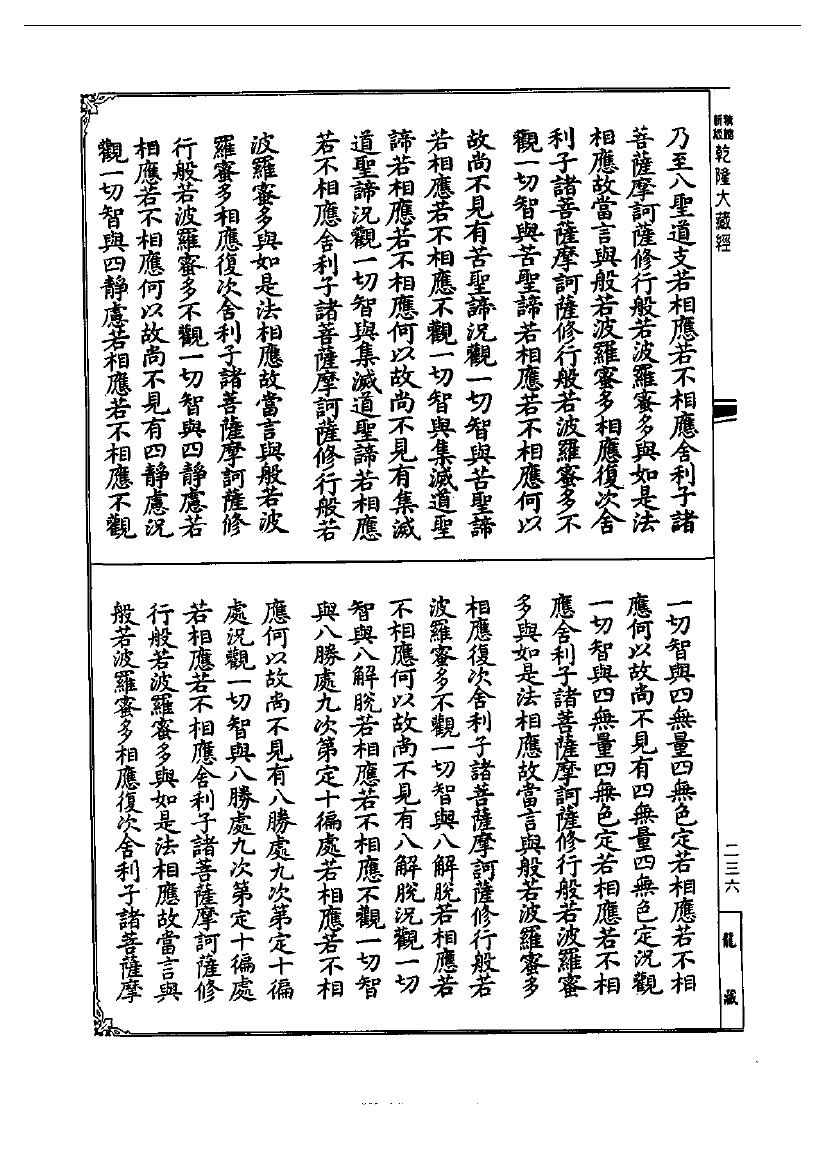 新版
乾隆大藏經
乃至八聖道支若相應若不相應舍利子諸
菩薩摩訶薩修行般若波羅蜜多與如是法
相應故當言與般若波羅蜜多相應復次舍
利子諸菩薩摩訶薩修行般若波羅蜜多不
觀一切智與苦聖諦若相應若不相應何以
故尚不見有苦聖諦況觀一切智與苦聖諦
若相應若不相應不觀一切智與集滅道聖
諦若相應若不相應何以故尚不見有集滅
道聖諦況觀一切智與集滅道聖諦若相應
若不相應舍利子諸菩薩摩訶薩修行般若
波羅蜜多與如是法相應故當言與般若波
羅蜜多相應復次舍利子諸菩薩摩訶薩修
行般若波羅蜜多不觀一切智與四靜慮若
相應若不相應何以故尚不見有四靜慮況
觀一切智與四靜慮若相應若不相應不觀
一切智與四無量四無色定若相應若不相
應何以故尚不見有四無量四無色定況觀
一切智與四無量四無色定若相應若不相
應舍利子諸菩薩摩訶薩修行般若波羅蜜
多與如是法相應故當言與般若波羅蜜多
相應復次舍利子諸菩薩摩訶薩修行般若
波羅蜜多不觀一切智與八解脫若相應若
不相應何以故尚不見有八解脫況觀一切
智與八解脫若相應若不相應不觀一切智
與八勝處九次第定十徧處若相應若不相
應何以故尚不見有八勝處九次第定十徧
處況觀一切智與八勝處九次第定十徧處
若相應若不相應舍利子諸菩薩摩訶薩修
行般若波羅蜜多與如是法相應故當言與
般若波羅蜜多相應復次舍利子諸菩薩摩
二三六
龍藏